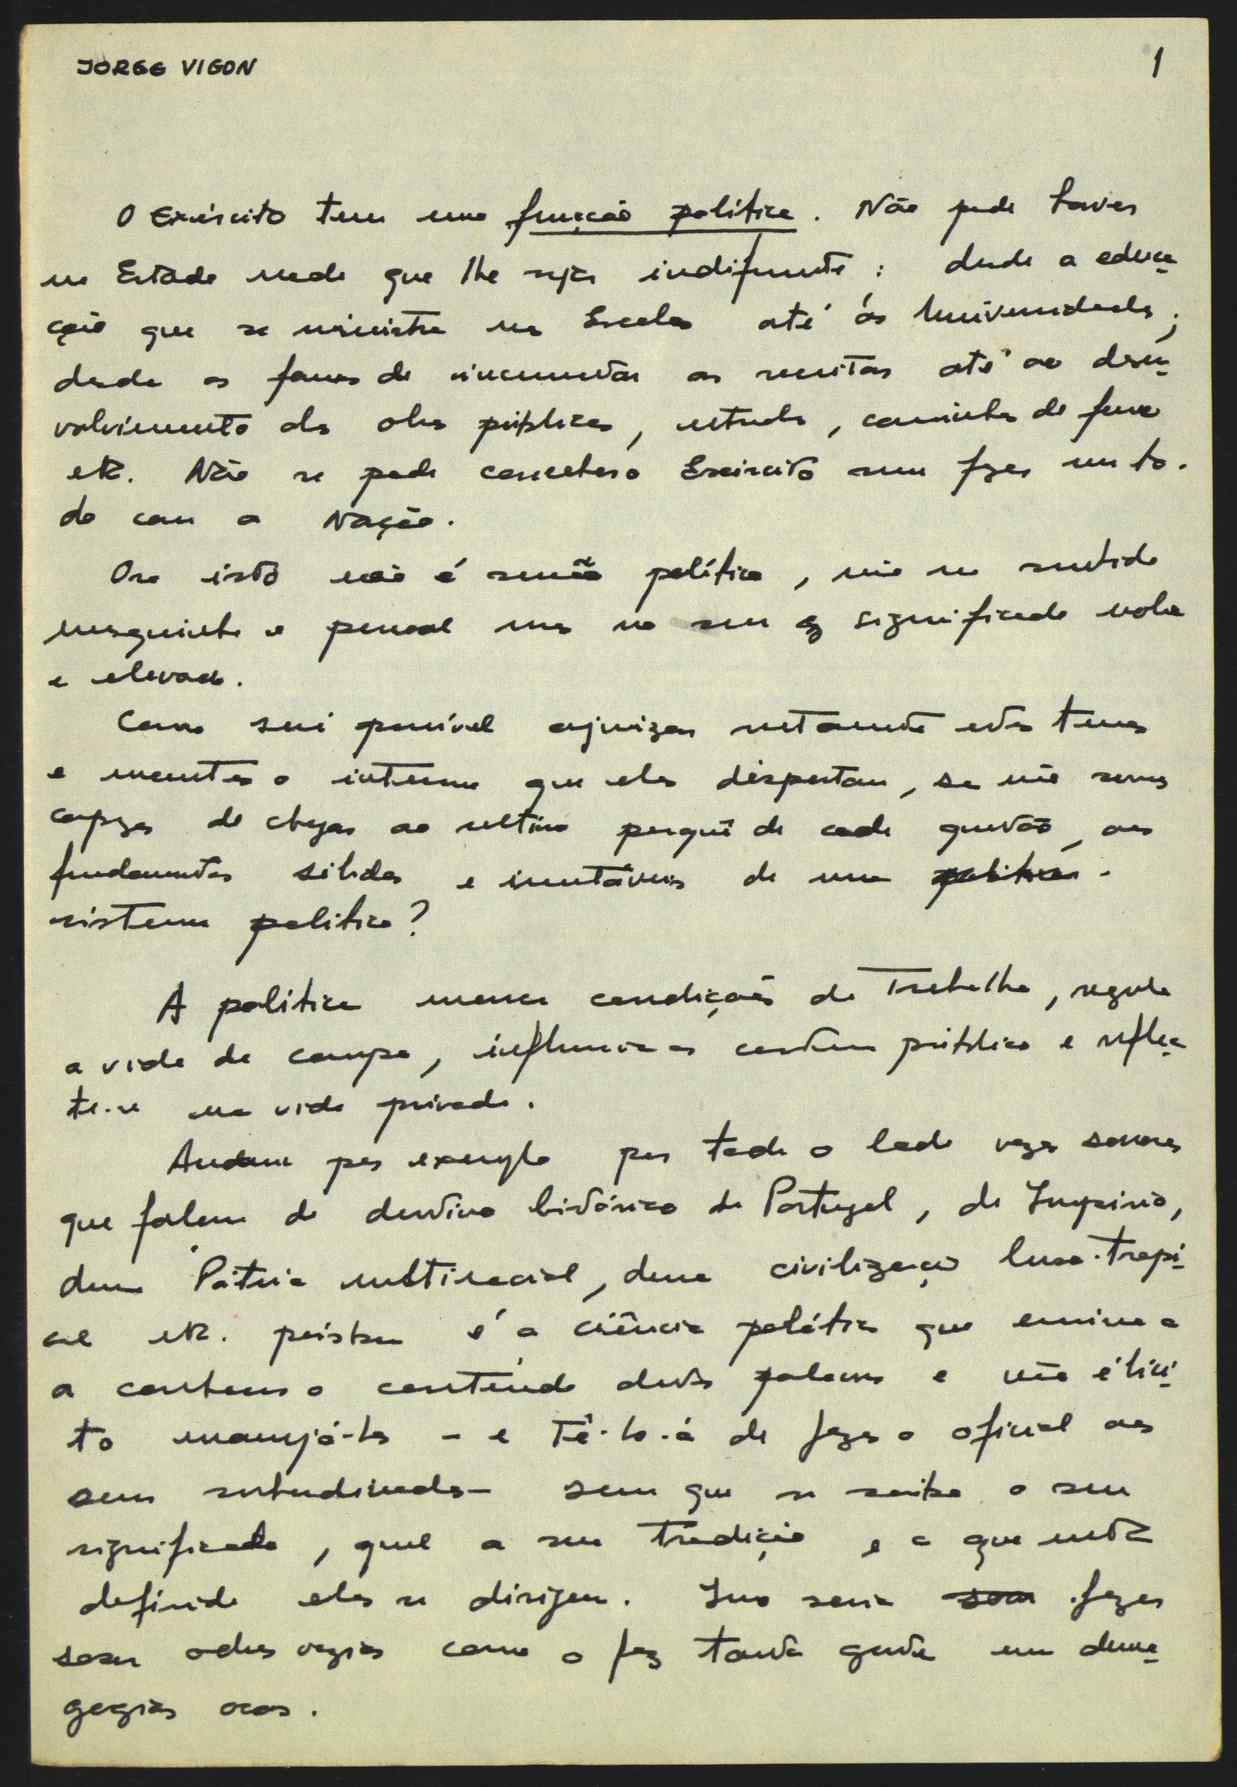 JORGE VIGON
1
O Exército tem uma função política. Não pode haver
no Estado nada que lhe seja indiferente: desde a educa-
ção que se ministra nas Escolas até às Universidades;
desde as formas de incrementar as receitas até ao desen-
volvimento das obras públicas, estradas, caminhos de ferro
etc. Não se pode conceber o Exército sem fazer um to-
do com a Nação.
Ora isto não é senão política, não no sentido
mesquinho e pessoal mas no seu significado nobre
e elevado.
Como será possível ajuizar rectamente estes temas
e manter o interesse que eles despertam, se não somos
capazes de chegar ao ultimo porquê de cada questão, aos
fundamentos sólidos e imutáveis de um política
sistema politico?
A política marca condições de Trabalho, regula
a vida do campo, influencia os costumes públicos e reflec-
te-se na vida privada.
Andam por exemplo por todo o lado vozes sonoras
que falam do destino histórico de Portugal, do Império,
duma Pátria multiracial, duma civilização luso-tropi-
cal etc. pois bem é a ciência política que ensina a
a conhecer o conteúdo destas palavras e não é lici-
to manejá-las - e tê-lo-á de fazer o oficial aos
seus subordinados - sem que se saiba o seu
significado, qual a sua Tradição e a que meta
definida elas se dirigem. Isso seria soar fazer
soar odres vazios como o faz tanta gente em dema-
gogias ocas.